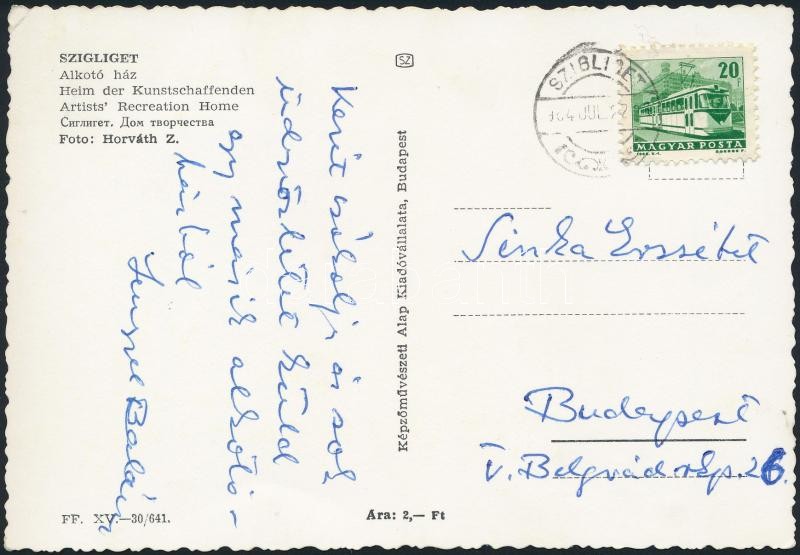 SZIGLIGET
Alkotó ház
Heim der Kunstschaffenden
Artists' Recreation Home
Сиглигет. Дом творчества
Foto: Horváth Z.
Kezit csókolja és sok
üdvözletet küld
egy másik alkotó-
házból
Balázs
FF. XV.—30/641.
SZ
Képzőművészeti Alap Kiadóvállalata, Budapest
Ára: 2,— Ft
SZIGLIGET
20
MAGYAR POSTA
Sinka Erzsébet
Budapest
V. Belgrád rkp. 26.